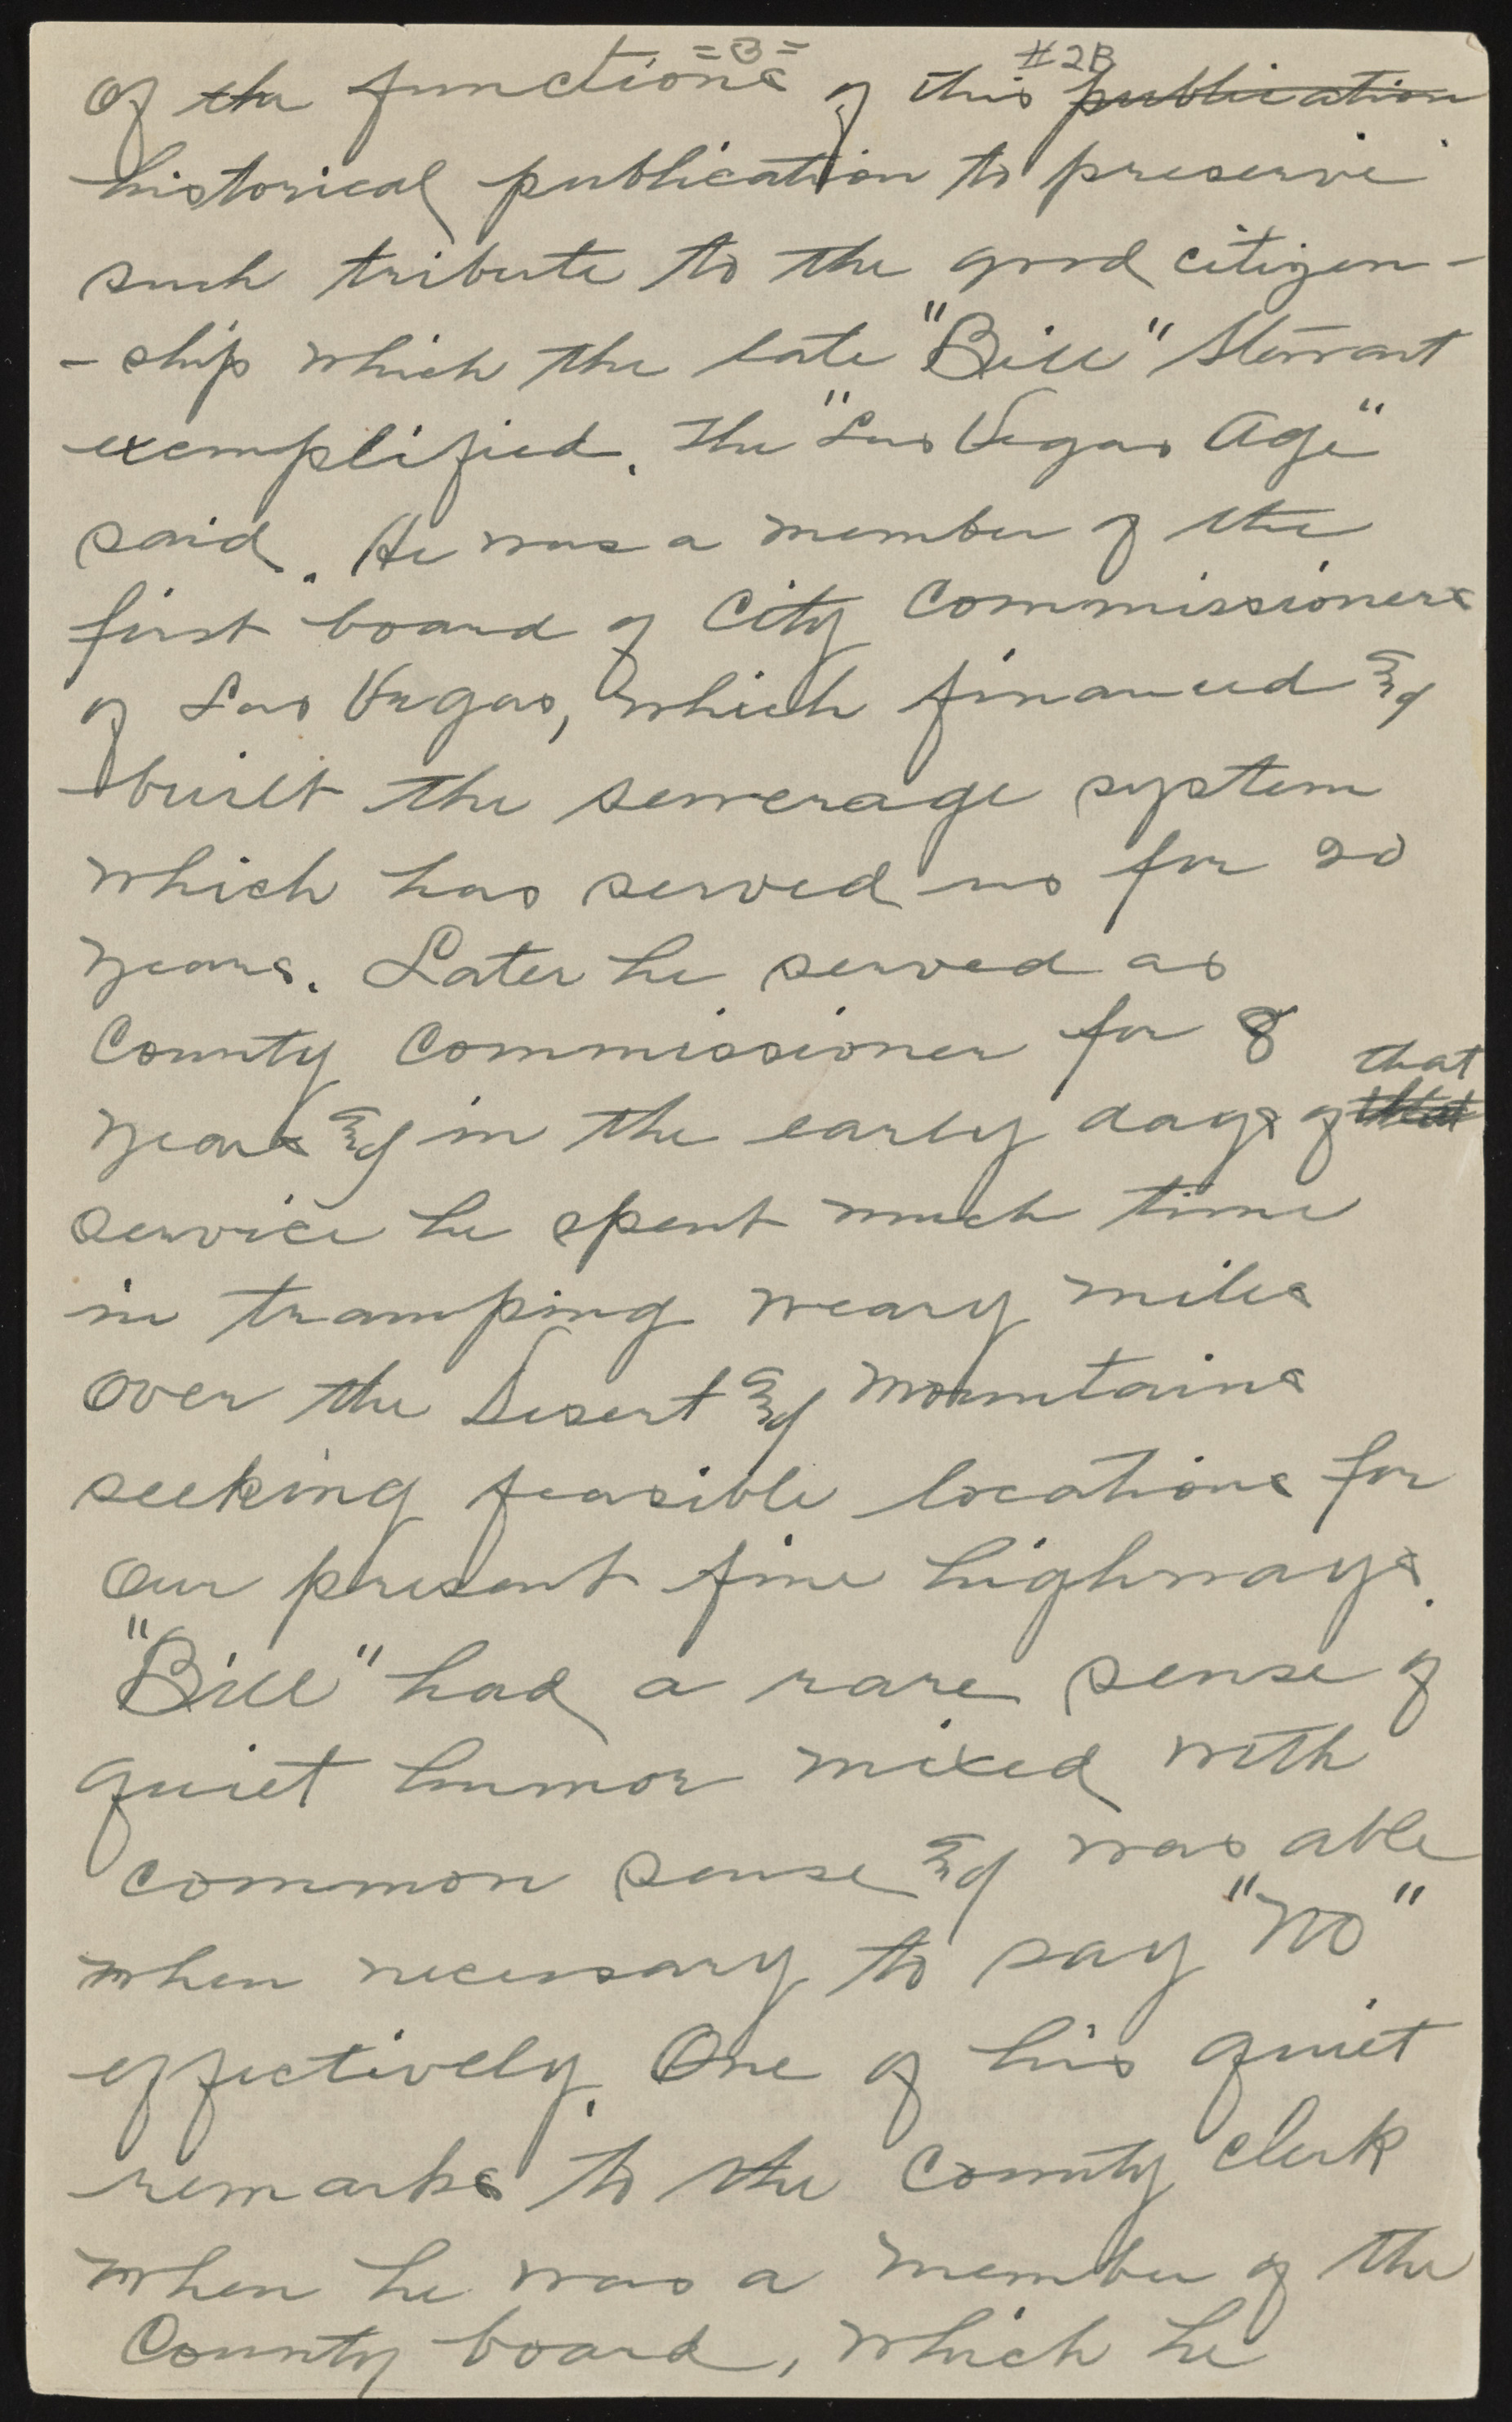 =3= #2B
Of the functions of this publication
historical publication to preserve
such tribute to the good citizen-
-ship which the late "Bill" Stewart
exemplified. The "Las Vegas Age"
said. He was a member of the
first board of City Commissioners
of Las Vegas, which financed &
built the sewerage system
which has served us for 20
years. Later he served as
County Commissioner for 8
years & in the early days of that that
service he spent much time
in tramping weary miles
over the Desert & Mountains
seeking feasible locations for
our present fine highways.
"Bill" had a rare sense of
quiet humor mixed with
common sense & was able
when necessary to say "No"
effectively. One of his quiet
remarks to the County Clerk
when he was a member of the
County board, which he